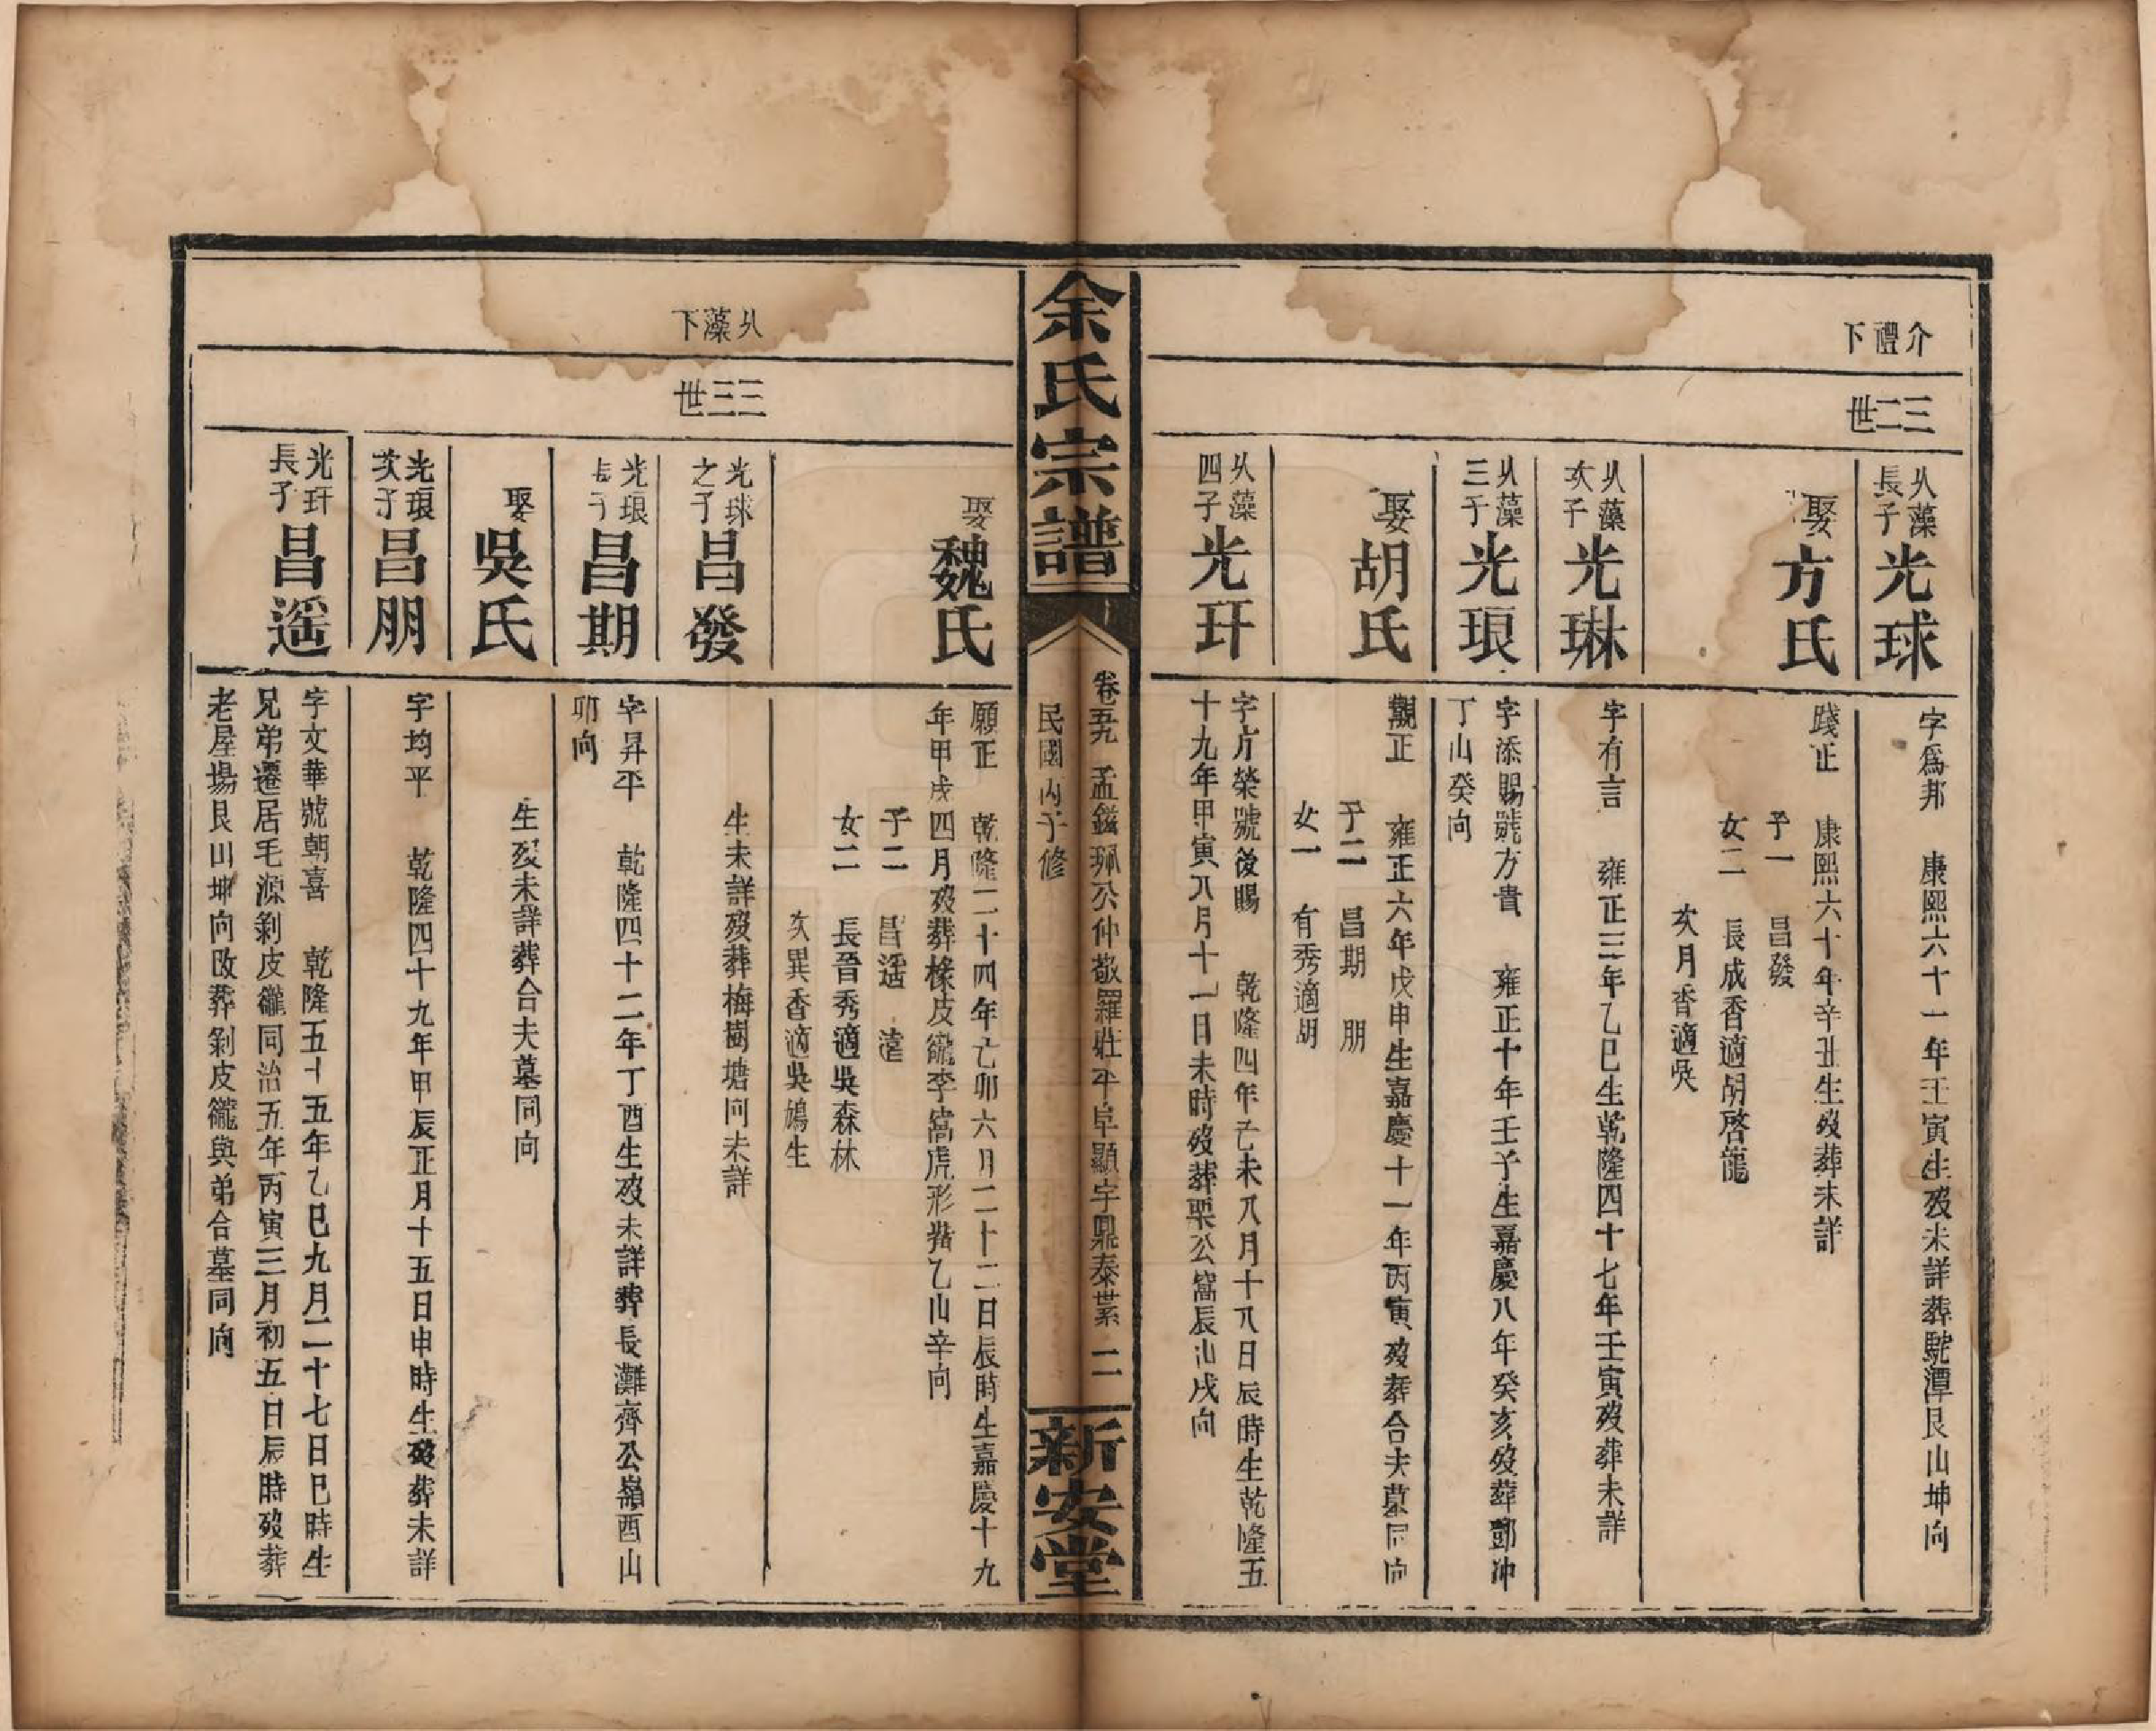 介禮下
三二世
㕥藻長子
光球
字爲邦　康熙六十一年壬寅生歿未詳葬駝潭艮山坤向
娶方氏
踐正　康熙六十年辛丑生歿葬未詳
子一　昌發
女二　長成香適胡啓龍
次月香適吳
㕥藻次子
光琳
字有言　雍正三年乙巳生乾隆四十七年壬寅歿葬未詳
㕥藻三子
光琅
字添賜號方貴　雍正十年壬子生嘉慶八年癸亥歿葬鄧冲
丁山癸向
娶胡氏
觀正　雍正六年戊申生嘉慶十一年丙寅歿葬合夫墓同向
子二　昌期　朋
女一　有秀適胡
㕥藻四子
光玕
字亣榮號後賜　乾隆四年己未八月十八日辰時生乾隆五
十九年甲寅八月十一日未時歿葬栗公窩辰山戌向
余氏宗譜
卷五九　孟鎰珮公仲敬羅壯平阜顯宇鼎泰世系　二
民國丙子修
新安堂
㕥藻下
三三世
娶魏氏
願正　乾隆二十四年己卯六月二十二日辰時生嘉慶十九
年甲戌四月歿葬檪皮籠李窩虎形塋乙山辛向
子二　昌遥　遠
女二　長晉秀適吳森林
次異香適吳鳩生
光球之子
昌發
生未詳歿葬梅樹塘向未詳
光琅長子
昌期
字昇平　乾隆四十二年丁酉生歿未詳葬長灘齊公嶺酉山
卯向
娶吳氏
生歿未詳葬合夫墓同向
光琅次子
昌朋
字均平　乾隆四十九年甲辰正月十五日申時生歿葬未詳
光玕長子
昌遥
字文華號朝喜　乾隆五十五年乙巳九月二十七日巳時生
兄弟遷居毛源剝皮籠同治五年丙寅三月初五日辰時歿葬
老屋場艮山坤向改葬剝皮籠與弟合墓同向